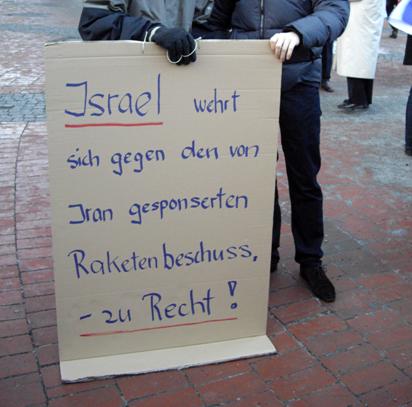 Israel wehrt
sich gegen den von
Iran gesponserten
Raketenbeschuss,
- zu Recht!